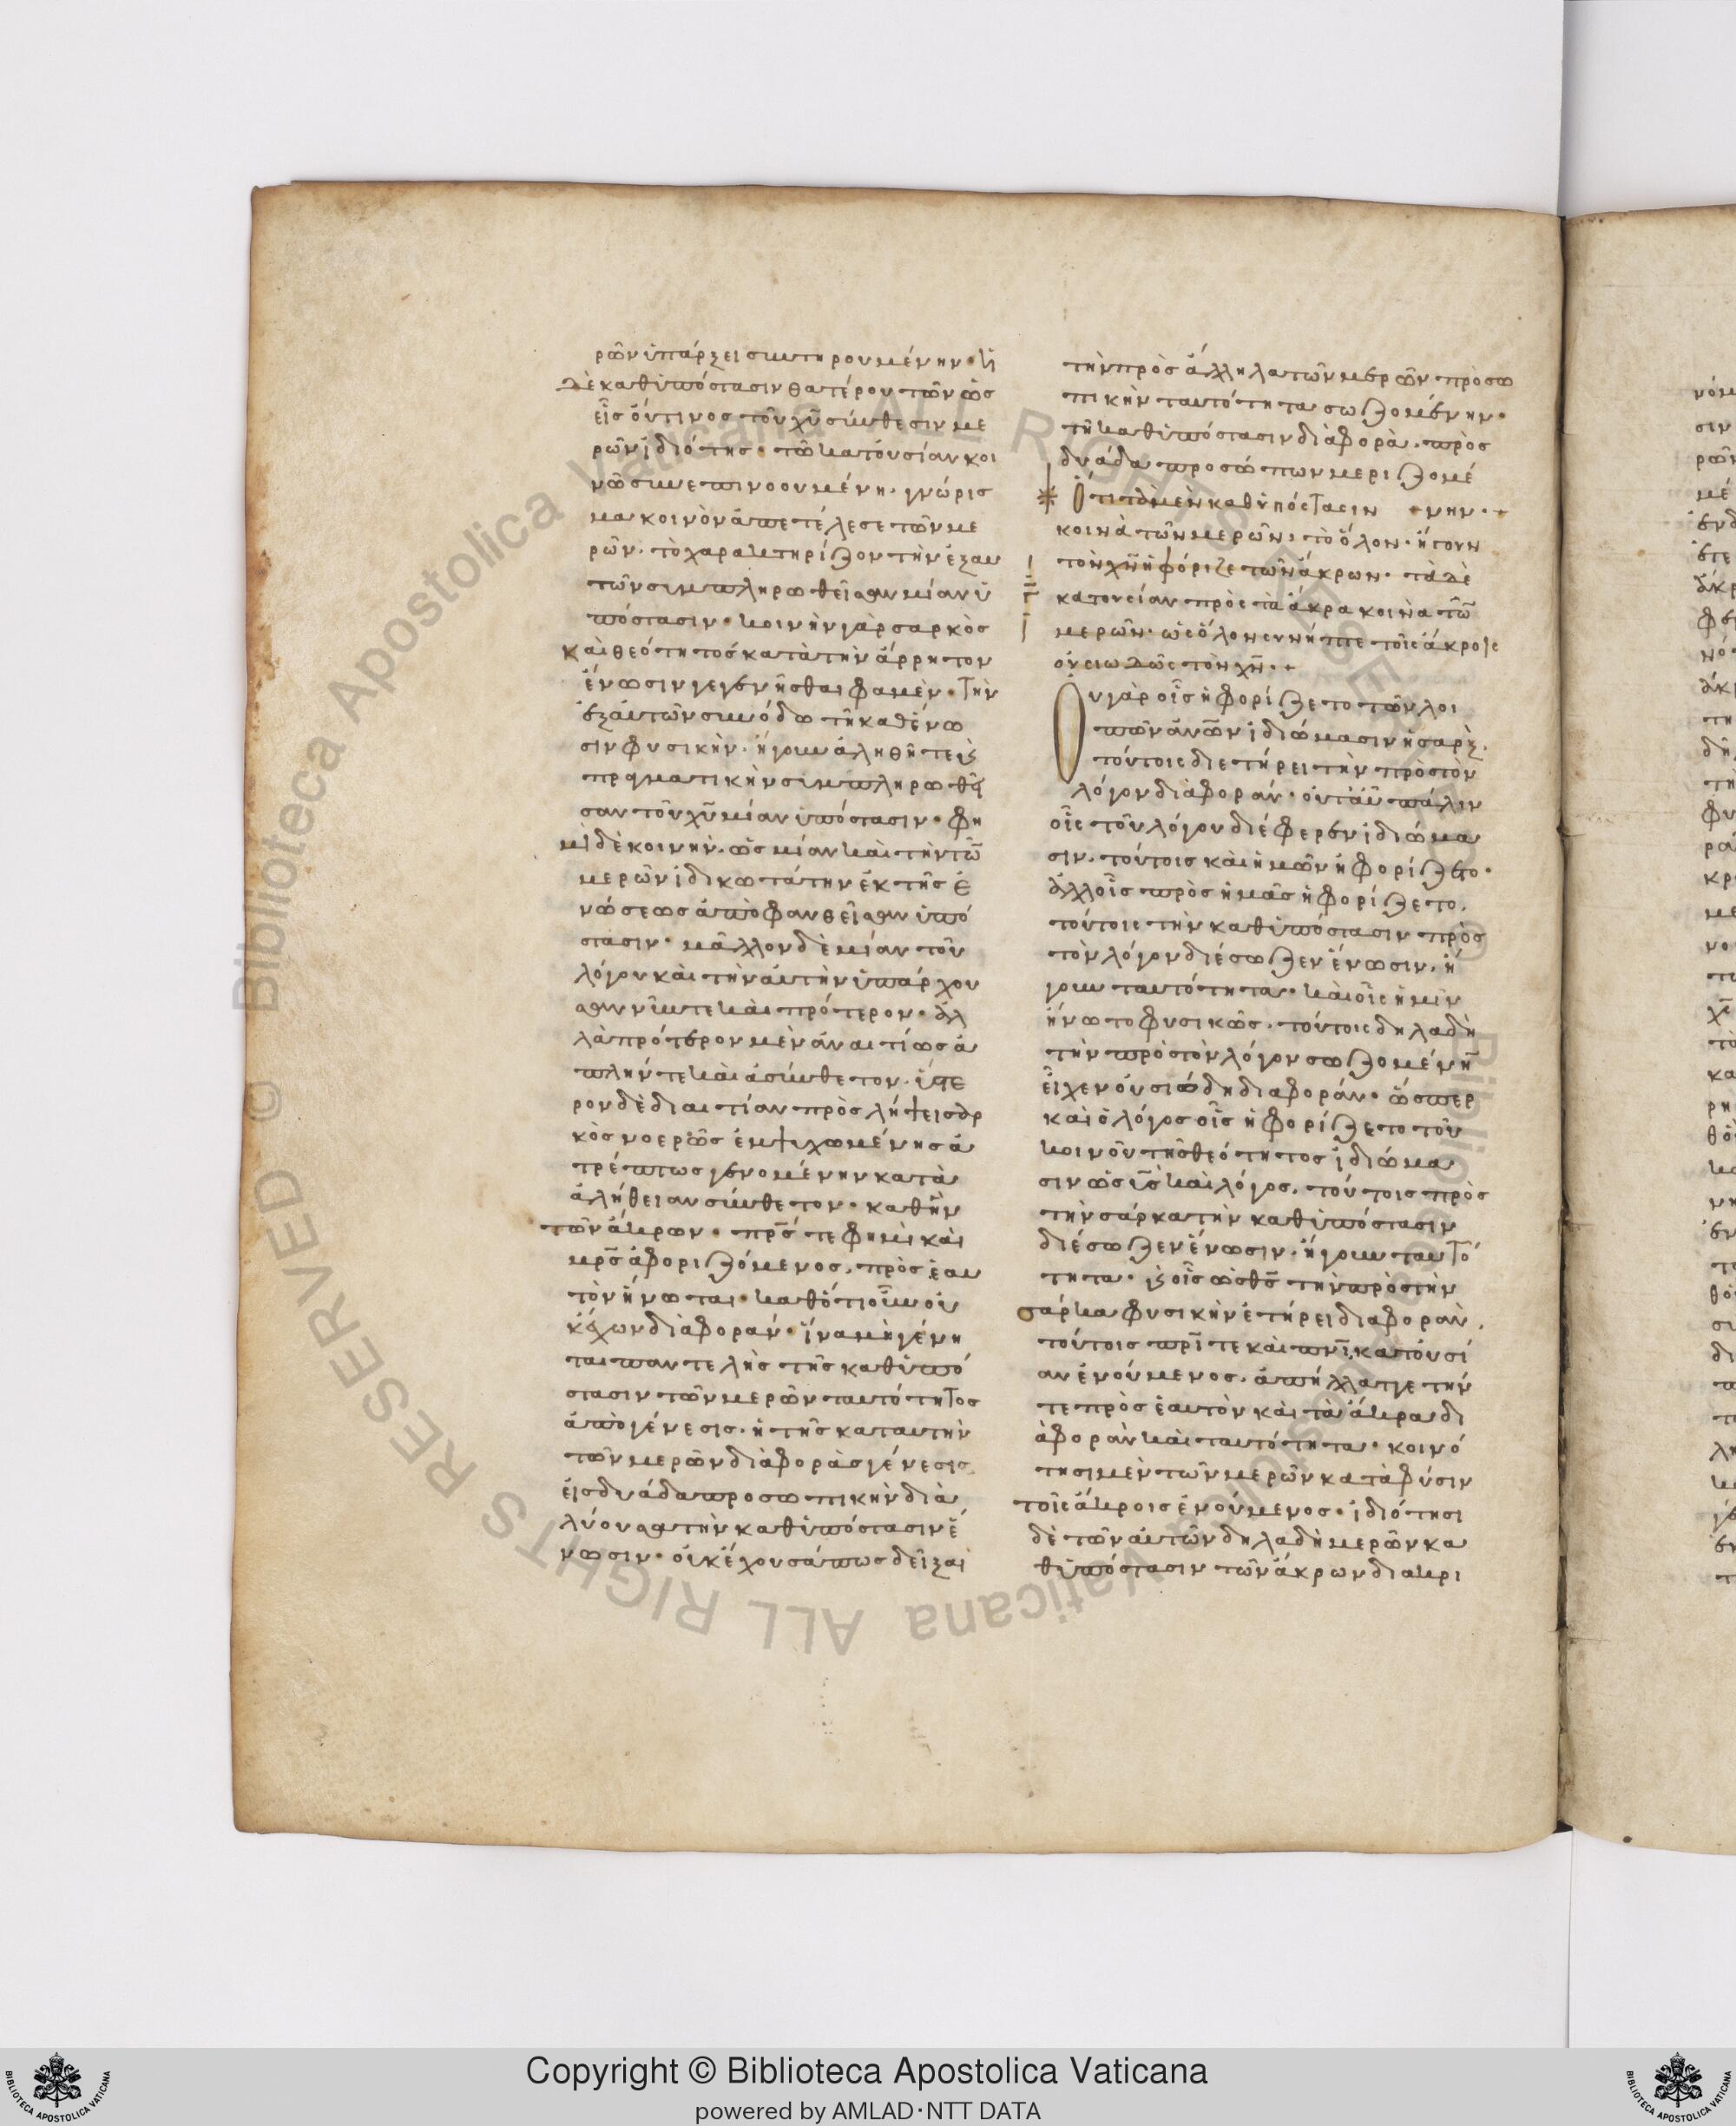 ρῶν ὑπάρξει συντηρουμένην· ἡ
δὲ καθ ὑπόστασιν θατέρου τῶν ὡς
εἷς ὅντινος τοῦ χυ σύνθεσιν με
ρῶν ἰδιότης· τῶ κατ ουσίαν κοι
νῶ συνεπινοουμένη· γνώρισ
μα κοινὸν ἀπετέλεσε τῶν με
ρῶν· τὸ χαρακτηρίζον τὴν ἐξ αυ
τῶν συμπληρωθεῖσαν μίαν ὑ
πόστασιν· κοινὴν γὰρ σαρκὸς
καὶ θεότητος κατὰ τὴν ἄρρητον
ἕνωσιν γεγενῆσθαι φαμὲν· τὴν
ἐξ ἀυτῶν συνόδω τῆ καθ ἕνω
σιν φυσικὴν· ἤγουν ἀληθῆ τε κ
πραγματικὴν συμπληρωθεῖ
σαν τοῦ χυ μίαν ὑπόστασιν· φη
μὶ δὲ κοινην· ὡς μίαν καὶ τὴν τῶ
μερῶν ἰδικωτάτην ἐκ τῆς ἑ
νώσεως ἀποφανθεῖσαν ὑπό
στασιν· μᾶλλον δὲ μίαν τοῦ
λόγου καὶ τὴν ἀυτὴν ὑπάρχου
σαν νῦν τε καὶ πρότερον· ἀλ
λὰ πρότερον μὲν ἀναιτίως ἁ
πλήν τε καὶ ἀσύνθετον· ὕστε
ρον δὲ δι αιτίαν προσλήψει σαρ
κὸς νοερῶς ἐμψυχωμένης ἀ
τρέπτως γενομένην κατὰ
ἀλήθειαν σύνθετον· καθ ἣν
τῶν ἄκρων· πρς τέ φημι καὶ
μρς ἀφοριζόμενος· πρὸς ἑαυ
τὸν ἥνωται· καθότιοῦν οὐ
κ ἔχων διαφοράν· ἵνα μὴ γένη
ται παντελὴς τῆς καθ ὑπό
στασιν τῶν μερῶν ταυτότητος
ἀπογένεσις· ἡ τῆς κατ αυτὴν
τῶν μερῶν διαφορᾶς γένεσις
εἰς δυάδα προσωπικὴν δια
λύουσα τὴν καθ ὑπόστασιν ἕ
νωσιν· οὐκ ἔχουσά πως δεῖξαι
τὴν πρὸς ἄλληλα τῶν μερῶν προσω
πικὴν ταυτότητα σωζομένην·
τῆ καθ ὑπόστασιν διαφορᾶ· πρὸς
δυάδα προσώπων μεριζομέ
νην·
Ὅτι τὰ μὲν καθ ὑπόστασιν
κοινὰ τῶν μερῶν· τὸ ὅλον· ἤτουν
τὸν χν ἠφόριζε τῶν ἄκρων· τὰ δὲ
κατ ουσίαν πρὸς τὰ ἄκρα κοινὰ τῶ
μερῶν· ὡς ὅλον συνήπτε τοῖς ἄκροις
οὐσιωδῶς τὸν χν·
Ου γὰρ οἷς ἠφορίζετο τῶν λοι
πῶν ἀνων ἰδιώμασιν ἡ σαρξ·
τούτοις διετήρει τὴν πρὸς τὸν
λόγον διαφοράν· οὐτ᾽ αὖ πάλιν
οἷς τοῦ λόγου διέφερεν ἰδιώμα
σιν· τούτοις καὶ ἡμῶν ἠφορίζετο·
ἀλλ οἷς πρὸς ἡμᾶς ἠφορίζετο·
τούτοις τὴν καθ ὑπόστασιν πρὸς
τὸν λόγον διέσωζεν ἕνωσιν· ἤ
γουν ταυτότητα· καὶ οἷς ἡμῖν
ἥνωτο φυσικῶς· τούτοις δηλαδὴ
τὴν πρὸς τὸν λόγον σωζομένη
εἶχεν ουσιώδη διαφοράν· ὥσπερ
καὶ ὁ λόγος οἷς ἠφορίζετο τοῦ
κοινοῦ τῆς θεότητος ἰδιώμα
σιν ὡς υς καὶ λόγος· τούτοις πρὸς
τὴν σάρκα τὴν καθ ὑπόστασιν
διέσωζεν ἕνωσιν· ἤγουν ταυτό
τητα· κ οἷς ὡς θς τὴν πρὸς τὴν
σάρκα φυσικὴν ἐτήρει διαφοράν·
τούτοις πρί τε καὶ πνι κατ ουσί
αν ἑνούμενος· ἀπήλλαττε τήν
τε πρὸς ἑαυτὸν καὶ τὰ ἄκρα δι
αφοράν καὶ ταυτότητα· κοινό
τησι μὲν τῶν μερῶν κατα φύσιν
τοῖς ἄκροις ἑνούμενος· ἰδιότησι
δὲ τῶν ἀυτῶν δηλαδὴ μερῶν κα
θ ὑπόστασιν τῶν ἄκρων διακρι
Copyright © Biblioteca Apostolica Vaticana
powered by AMLAD·NTT DATA